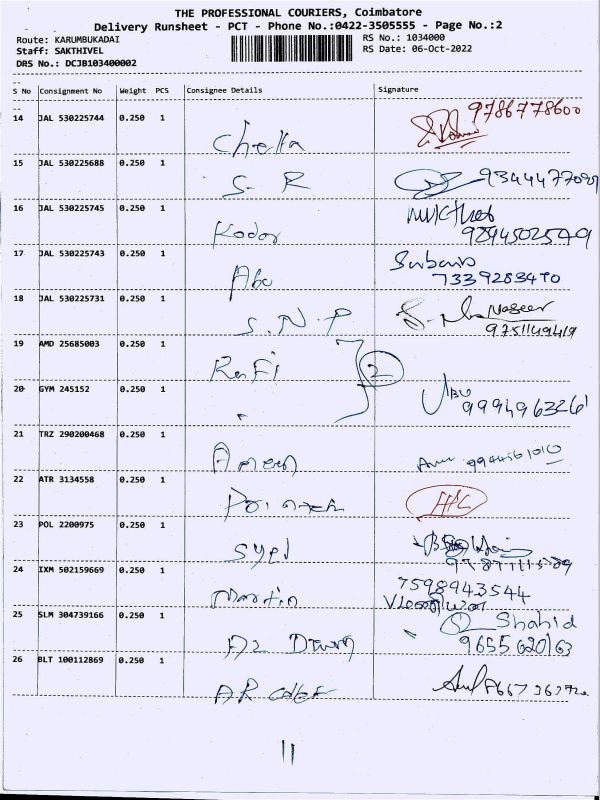 THE PROFESSIONAL COURIERS, Coimbatore
Delivery Runsheet - PCT - Phone No.:0422-3505555 - Page No.:2
Route: KARUMBUKADAI RS No.: 1034000
Staff: SAKTHIVEL RS Date: 06-Oct-2022
DRS No.: DCJB103400002
S No Consignment No Weight PCS Consignee Details Signature
14 JAL 530225744 0.250 1 Chella 9786778600
15 JAL 530225688 0.250 1 S. R
16 JAL 530225745 0.250 1 Kodar
9294502549
17 JAL 530225743 0.250 1 Abu
7339283470
18 JAL 530225731 0.250 1 S.N.P Naseer
9751149419
19 AMD 25685003 0.250 1 Rafi 2
20 GYM 245152 0.250 1
9994963261
21 TRZ 290200468 0.250 1 Ameen 9944561010
22 ATR 3134558 0.250 1
23 POL 2200975 0.250 1 Syed
24 IXM 502159669 0.250 1 Martin 7598943544
25 SLM 304739166 0.250 1 Shahid
9655620163
26 BLT 100112869 0.250 1 AR
11